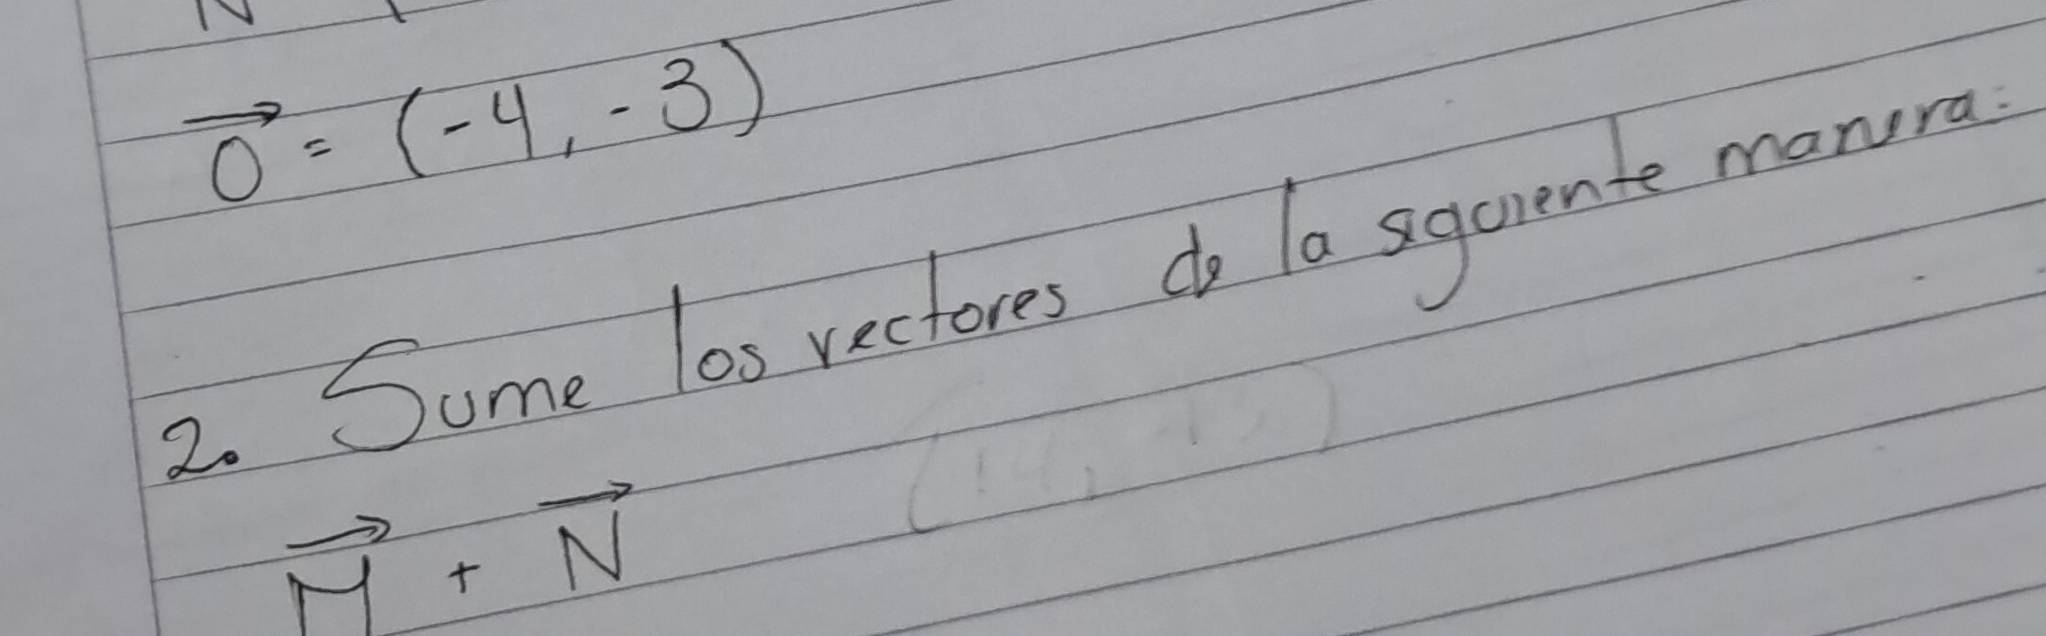 O⃗ = (-4, -3)
2. Sume los vectores de la siguiente manera:
M⃗ + N⃗